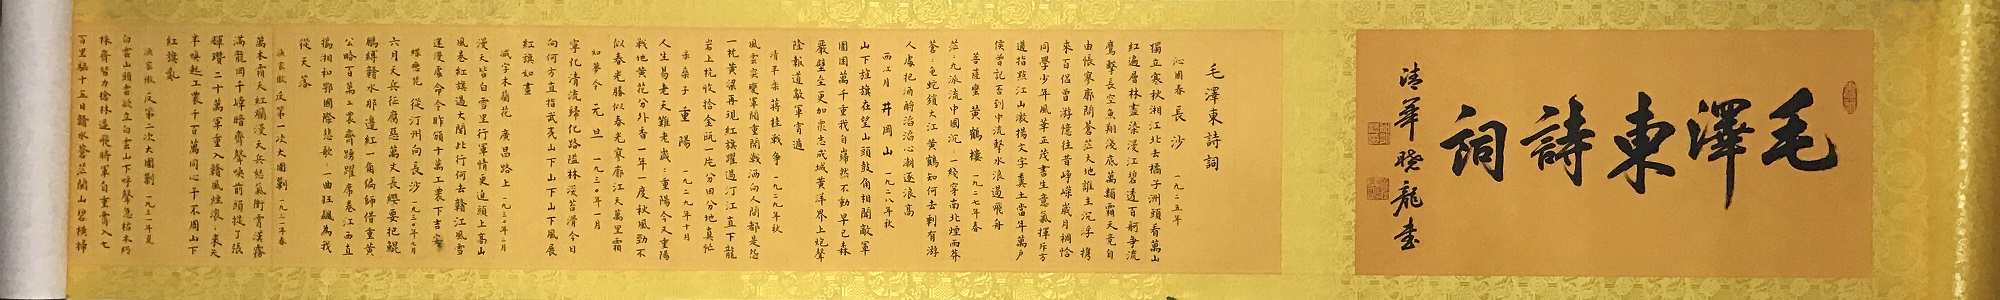 毛澤東詩詞
清華曉龍書
毛澤東詩詞
沁園春 長沙 一九二五年
獨立寒秋湘江北去橘子洲頭看萬山
紅遍層林盡染漫江碧透百舸爭流
鷹擊長空魚翔淺底萬類霜天競自
由悵寥廓問蒼茫大地誰主沉浮攜
來百侶曾游憶往昔崢嶸歲月稠恰
同學少年風華正茂書生意氣揮斥方
遒指點江山激揚文字糞土當年萬戶
侯曾記否到中流擊水浪遏飛舟
菩薩蠻 黃鶴樓 一九二七年春
茫茫九派流中國沉沉一綫穿南北煙雨莽
蒼蒼龜蛇鎖大江黃鶴知何去剩有游
人處把酒酹滔滔心潮逐浪高
西江月 井岡山 一九二八年秋
山下旌旗在望山頭鼓角相聞敵軍
圍困萬千重我自巋然不動早已森
嚴壁壘更加眾志成城黃洋界上炮聲
隆報道敵軍宵遁
清平樂 蔣桂戰爭 一九二九年秋
風雲突變軍閥重開戰洒向人間都是怨
一枕黃粱再現紅旗躍過汀江直下龍
岩上杭收拾金甌一片分田分地真忙
采桑子 重陽 一九二九年十月
人生易老天難老歲歲重陽今又重陽
戰地黃花分外香一年一度秋風勁不
似春光勝似春光寥廓江天萬里霜
如夢令 元旦 一九三〇年一月
寧化清流歸化路隘林深苔滑今日
向何方直指武夷山下山下山下風展
紅旗如畫
減字木蘭花 廣昌路上 一九三〇年二月
漫天皆白雪里行軍情更迫頭上高山
風卷紅旗過大關此行何去贛江風雪
迷漫處命令昨頒十萬工農下吉安
蝶戀花 從汀州向長沙 一九三〇年七月
六月天兵征腐惡萬丈長纓要把鯤
鵬縛贛水那邊紅一角偏師借重黃
公略百萬工農齊踴躍席卷江西直
搗湘和鄂國際悲歌歌一曲狂飆為我
從天落
漁家傲 反第一次大圍剿 一九三一年春
萬木霜天紅爛漫天兵怒氣衝霄漢霧
滿龍岡千嶂暗齊聲喚前頭捉了張
輝瓚二十萬軍重入贛風煙滾滾來天
半喚起工農千百萬同心干不周山下
紅旗亂
漁家傲 反第二次大圍剿 一九三一年夏
白雲山頭雲欲立白雲山下呼聲急枯木朽
株齊努力槍林逼飛將軍自重霄入七
百里驅十五日贛水蒼茫閩山碧橫掃